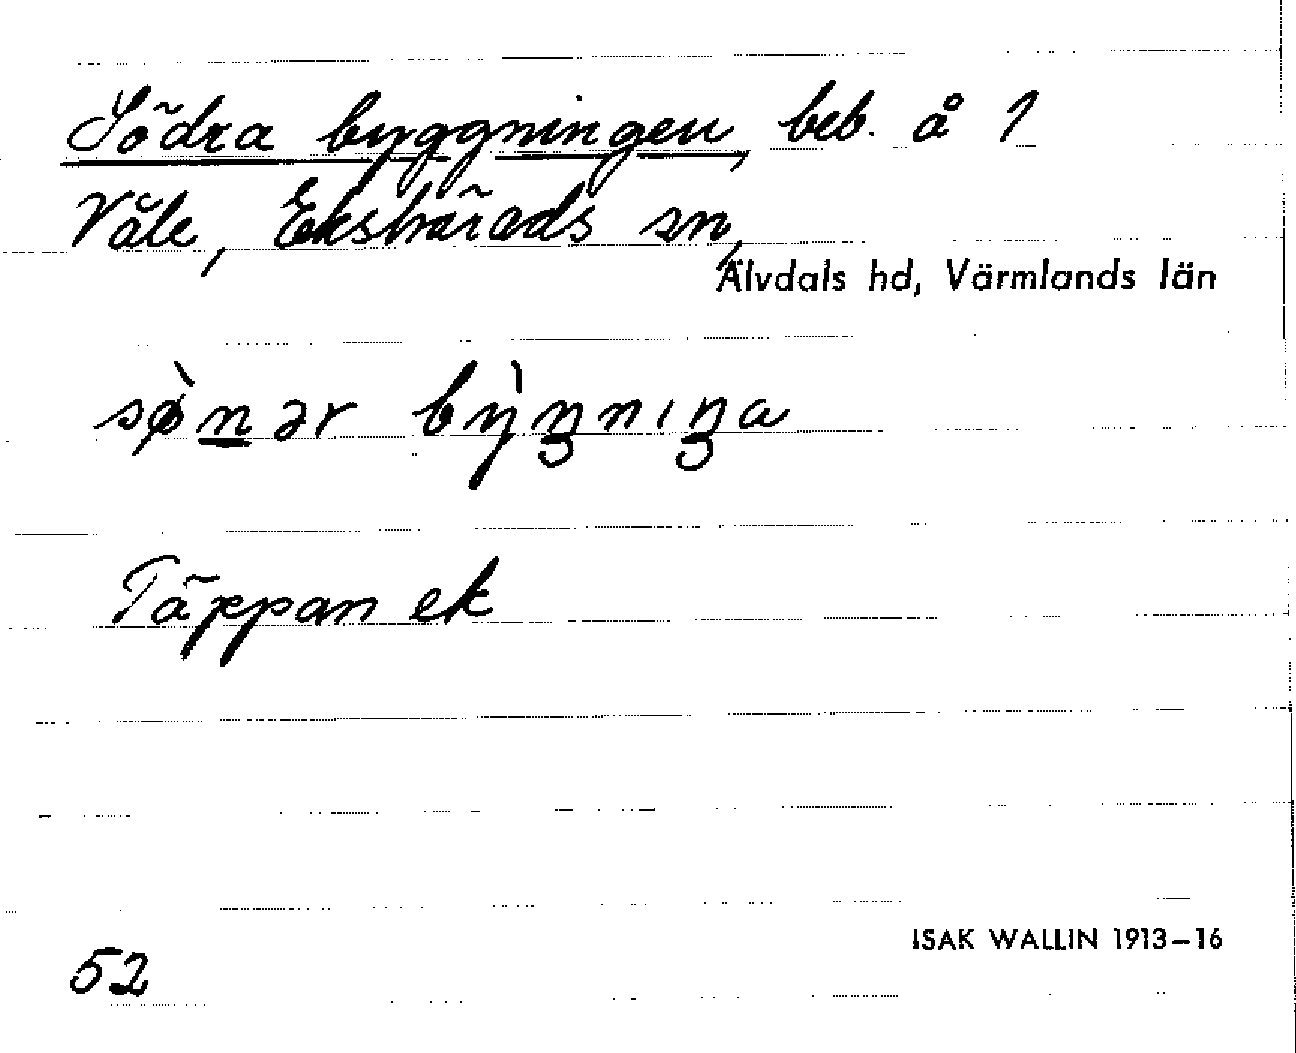 Södra byggningen, beb. å 1
Våle, Ekshärads sn,
Älvdals hd, Värmlands län
sø̀n̲ər bỳŋnıŋa
Täppan ek
ISAK WALLIN 1913–16
52